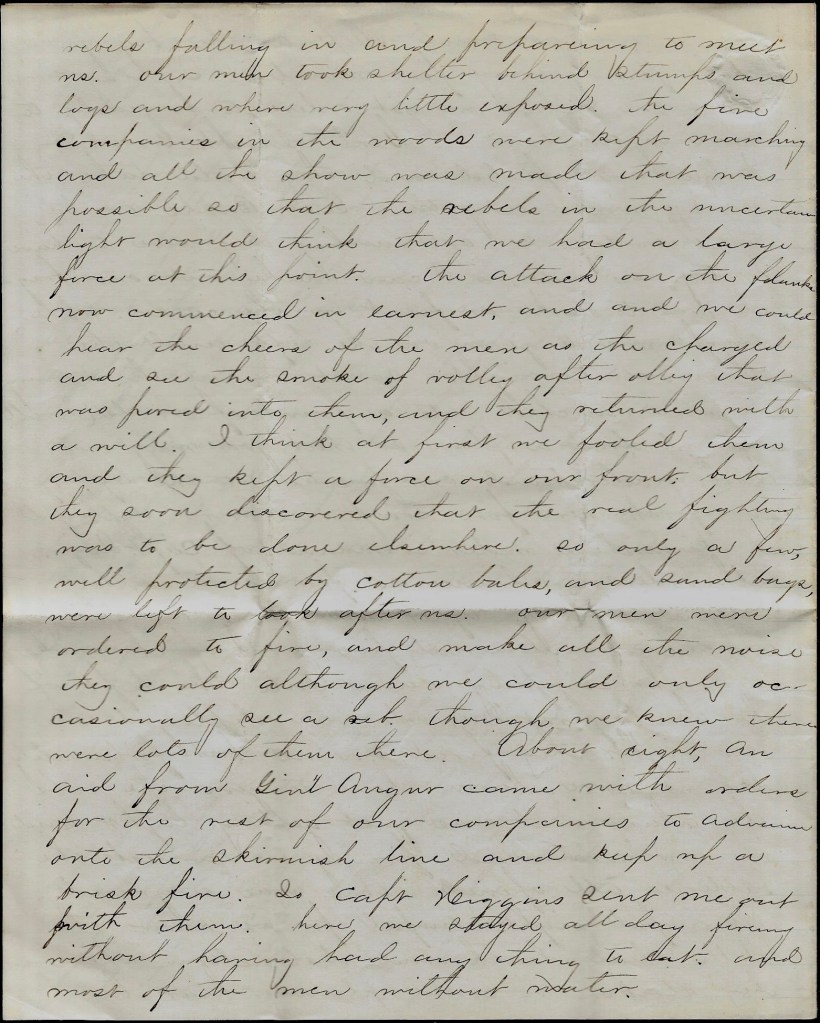 rebels falling in and prepareing to meet
us. our men took shelter behind stumps and
logs and where very little exposed. the five
companies in the woods were kept marching
and all the show was made that was
possible so that the rebels in the uncertain
light would think that we had a large
force at this point. the attack on the flanks
now commenced in earnest, and and we could
hear the cheers of the men as the charged
and see the smoke of volley after olley that
was pored into them, and they returned with
a will. I think at first we fooled them
and they kept a force on our front. but
they soon discovered that the real fighting
was to be done elsewhere. so only a few,
well protected by cotton bales, and sand bags,
were left to look after us. our men were
ordered to fire, and make all the noise
they could although we could only oc-
casionally see a reb. though we knew there
were lots of them there. About eight, an
aid from Gin'l Augur came with orders
for the rest of our companies to advance
onto the skirmish line and keep up a
brisk fire. So Capt Higgins sent me out
with them. here we stayed all day fireing
without having had any thing to eat. and
most of the men without water.